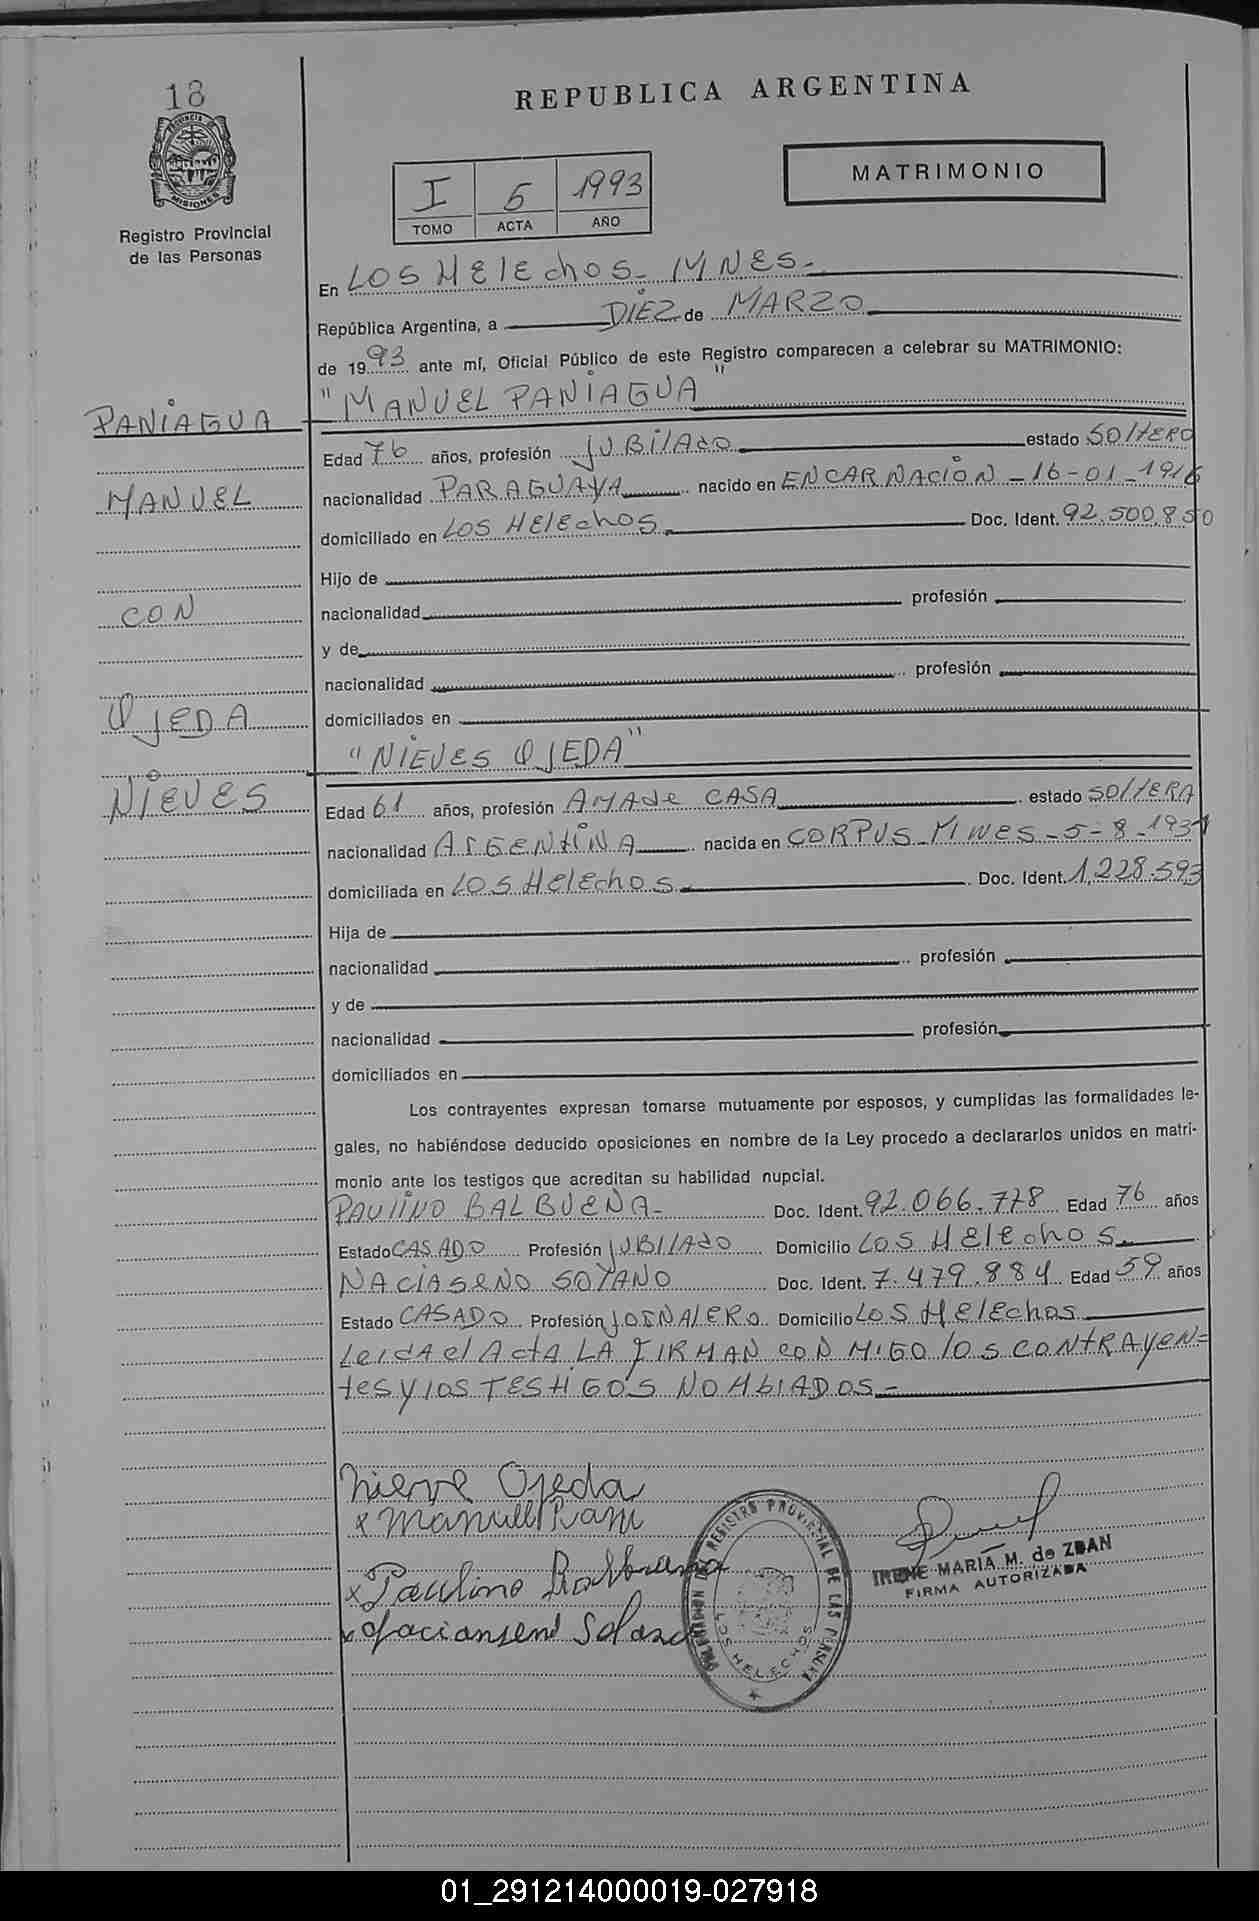 18
REPUBLICA ARGENTINA
PROVINCIA DE
MISIONES
Registro Provincial
de las Personas
MATRIMONIO
I 5 1993
TOMO ACTA AÑO
En LOS HElEchos - MNES -
República Argentina, a DIEZ de MARZO
de 1993 ante mí, Oficial Público de este Registro comparecen a celebrar su MATRIMONIO:
"MANUEL PANIAGUA"
PANIAGUA
Edad 76 años, profesión JUBIlAdo estado SOltERO
MANUEL
nacionalidad PARAGUAYA nacido en ENCARNACION - 16-01-1916
domiciliado en LOS HElEchos Doc. Ident. 92.500.850
Hijo de
CON
nacionalidad profesión
y de
nacionalidad profesión
OJEDA
domiciliados en
"NIEVES OJEDA"
NIEVES
Edad 61 años, profesión AMA de CASA estado SOltERA
nacionalidad ARGENtINA nacida en CORPUS - MNES - 5-8-1931
domiciliada en LOS HElEchos Doc. Ident. 1,228.593
Hija de
nacionalidad profesión
y de
nacionalidad profesión
domiciliados en
Los contrayentes expresan tomarse mutuamente por esposos, y cumplidas las formalidades le-
gales, no habiéndose deducido oposiciones en nombre de la Ley procedo a declararlos unidos en matri-
monio ante los testigos que acreditan su habilidad nupcial.
PAULINO BALBUENA - Doc. Ident. 92.066.778 Edad 76 años
Estado CASADO Profesión JUBIlAdO Domicilio LOS HElEchOS
NACIASENO SOTANO Doc. Ident. 7.479.884 Edad 59 años
Estado CASADO Profesión JORNAlERO Domicilio LOS HElEchos
LeidA el ActA LA FIRMAN CONMIGO lOS CONtRAyEN=
tes y lOS TESTIGOS NOMbRADOS -
Nieve Ojeda
x Manuel Pani
x Paulino Balbuena
DELEGACION DEL REGISTRO PROVINCIAL DE LAS PERSONAS
LOS HELECHOS
IRENE MARIA M. de ZDAN
FIRMA AUTORIZADA
01_291214000019-027918